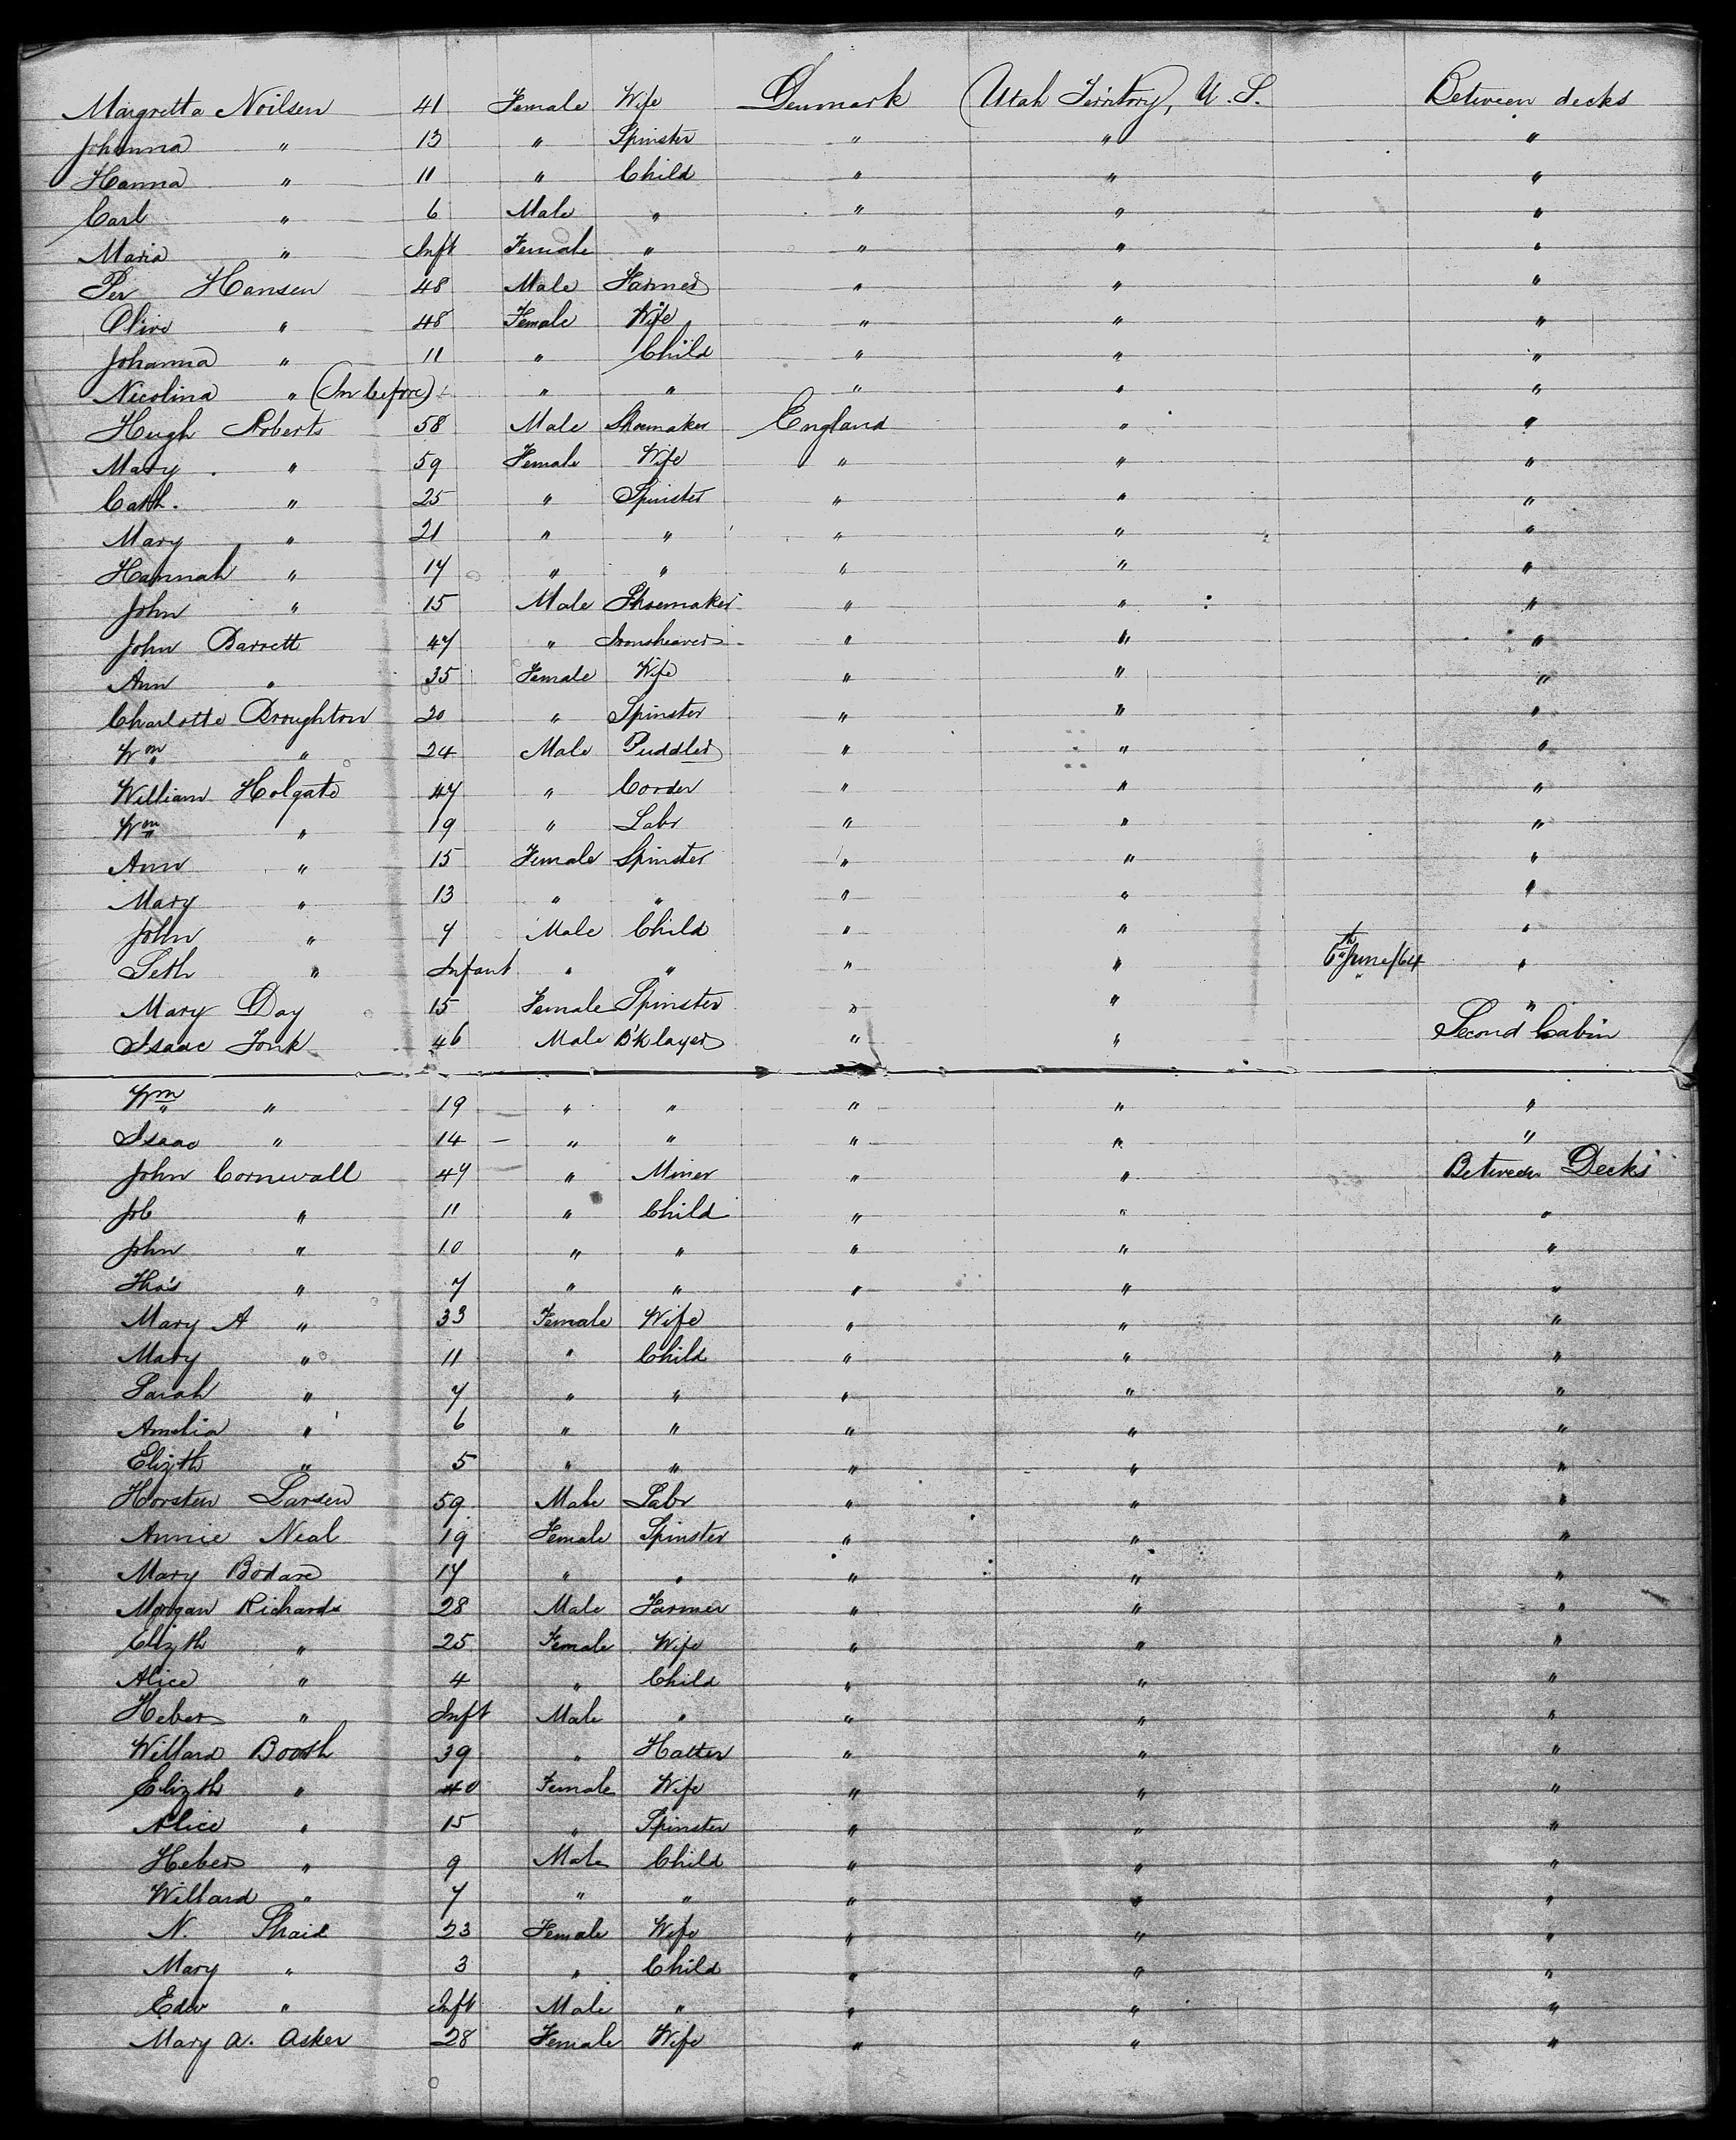 Margretta Neilsen 41 Female Wife Denmark Utah Territory, U.S. Between decks
Johanna " 13 " Spinster " " "
Hanna " 11 " Child " " "
Carl " 6 Male " " " "
Maria " Inft Female " " " "
Per Hansen 48 Male Farmer " " "
Olive " 48 Female Wife " " "
Johanna " 11 " Child " " "
Nicolina " (In before) " " " " "
Hugh Roberts 58 Male Shoemaker England " "
Mary " 59 Female Wife " " "
Cath. " 25 " Spinster " " "
Mary " 21 " " " " "
Hannah " 17 " " " " "
John " 15 Male Shoemaker " " "
John Barrett 47 " " " "
Ann " 35 Female Wife " " "
Charlotte Broughton 20 " Spinster " " "
Wm " 24 Male Puddler " " "
William Holgate 47 " Corder " " "
Wm " 19 " Labr " " "
Ann " 15 Female Spinster " " "
Mary " 13 " " " " "
John " 7 Male Child " " "
Seth " Infant " " " " 6th June/64 "
Mary Day 15 Female Spinster " " "
Isaac Fonk 46 Male B'klayer " " Second Cabin
Wm " 19 " " " " "
Isaac " 14 " " " " "
John Cornwall 47 " Miner " " Between Decks
Job " 11 " Child " " "
John " 10 " " " " "
Tho's " 7 " " " " "
Mary A " 33 Female Wife " " "
Mary " 11 " Child " " "
Sarah " 7 " " " " "
Amelia " 6 " " " " "
Elizth " 5 " " " " "
Horsten Larsen 59 Male Labr " " "
Annie Neal 19 Female Spinster " " "
Mary Bodare 17 " " " " "
Morgan Richards 28 Male Farmer " " "
Elizth " 25 Female Wife " " "
Alice " 4 " Child " " "
Heber " Inft Male " " " "
Willard Booth 39 " Hatter " " "
Elizth " 40 Female Wife " " "
Alice " 15 " Spinster " " "
Heber " 9 Male Child " " "
Willard " 7 " " " " "
N. Shaid 23 Female Wife " " "
Mary " 3 " Child " " "
Edw " Inft Male " " " "
Mary A. Asker 28 Female Wife " " "